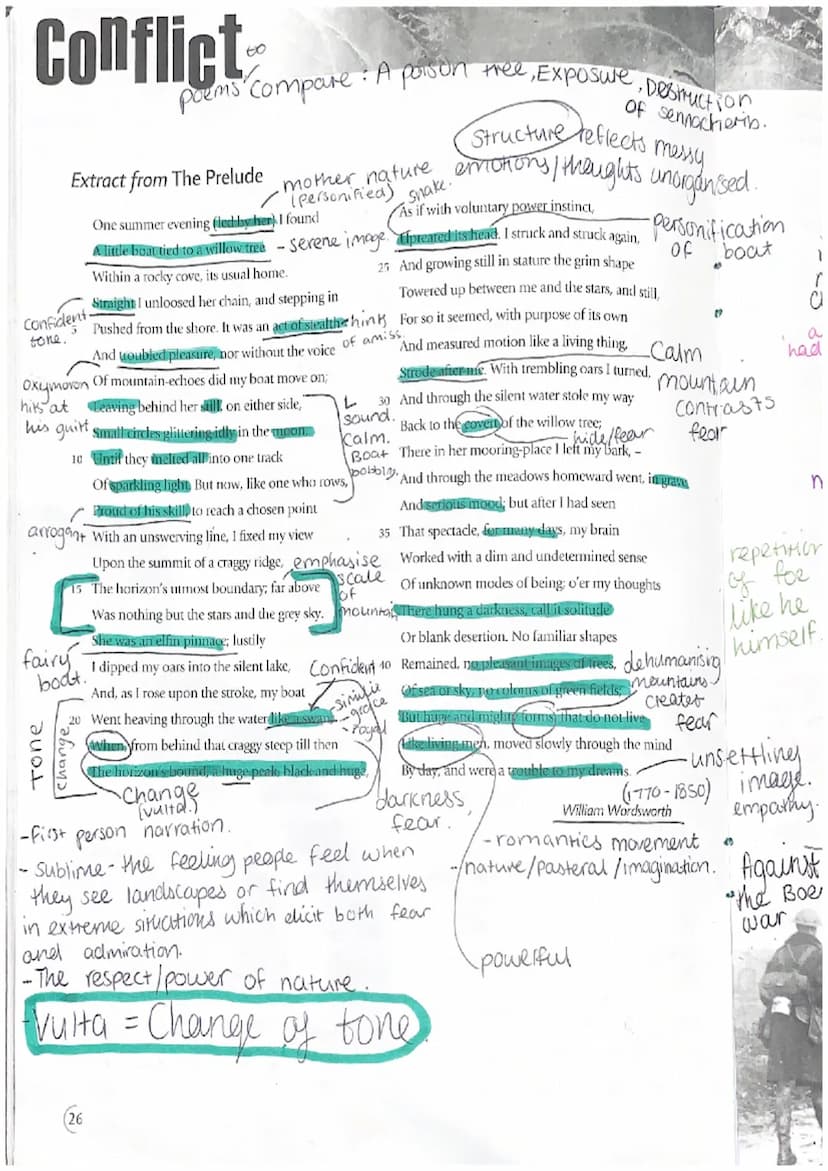 Conflict
poems to compare : A poison tree, Exposure, Destruction
of sennacherib.
Structure reflects messy
emotions/thoughts unorganised.
Extract from The Prelude
mother nature
(personified)
One summer evening (led by her) I found
A little boat tied to a willow tree
- serene image.
Within a rocky cove, its usual home.
Straight I unloosed her chain, and stepping in
confident
tone.
5 Pushed from the shore. It was an act of stealth
think
of amiss.
And troubled pleasure, nor without the voice
oxymoron
hits at
his guilt
Of mountain-echoes did my boat move on;
Leaving behind her still, on either side,
Small circles glittering idly in the moon,
10 Until they melted all into one track
Of sparkling light. But now, like one who rows,
L
sound.
calm.
Boat
bobbing.
Proud of his skill, to reach a chosen point
arrogant
With an unswerving line, I fixed my view
Upon the summit of a craggy ridge,
emphasise
scale
of
mountain
15 The horizon's utmost boundary; far above
Was nothing but the stars and the grey sky.
She was an elfin pinnace; lustily
fairy
boat.
I dipped my oars into the silent lake,
Confident
And, as I rose upon the stroke, my boat
20 Went heaving through the water like a swan;
- simile
- grace
- royal
When, from behind that craggy steep till then
The horizon's bound, a huge peak, black and huge,
Tone
change
Change
(vulta.)
darkness,
fear.
snake.
As if with voluntary power instinct,
Upreared its head. I struck and struck again,
personification
of boat
25 And growing still in stature the grim shape
Towered up between me and the stars, and still,
For so it seemed, with purpose of its own
And measured motion like a living thing,
Strode after me. With trembling oars I turned,
Calm
mountain
contrasts
fear
30 And through the silent water stole my way
Back to the covert of the willow tree;
hide/fear
There in her mooring-place I left my bark, –
And through the meadows homeward went, in grave
And serious mood; but after I had seen
35 That spectacle, for many days, my brain
Worked with a dim and undetermined sense
Of unknown modes of being; o'er my thoughts
There hung a darkness, call it solitude
Or blank desertion. No familiar shapes
40 Remained, no pleasant images of trees,
Of sea or sky, no colours of green fields;
But huge and mighty forms, that do not live
Like living men, moved slowly through the mind
By day, and were a trouble to my dreams.
dehumanising
mountains -
creates
fear
unsettling
image.
empathy.
(1770 - 1850)
William Wordsworth
- romantics movement
- /nature/pastoral/imagination.
powerful
- First person narration.
- Sublime - the feeling people feel when
they see landscapes or find themselves
in extreme situations which elicit both fear
and admiration.
- The respect/power of nature.
- Vulta = Change of tone
26
had
repetition
of for
like he
himself.
Against
the Boer
war